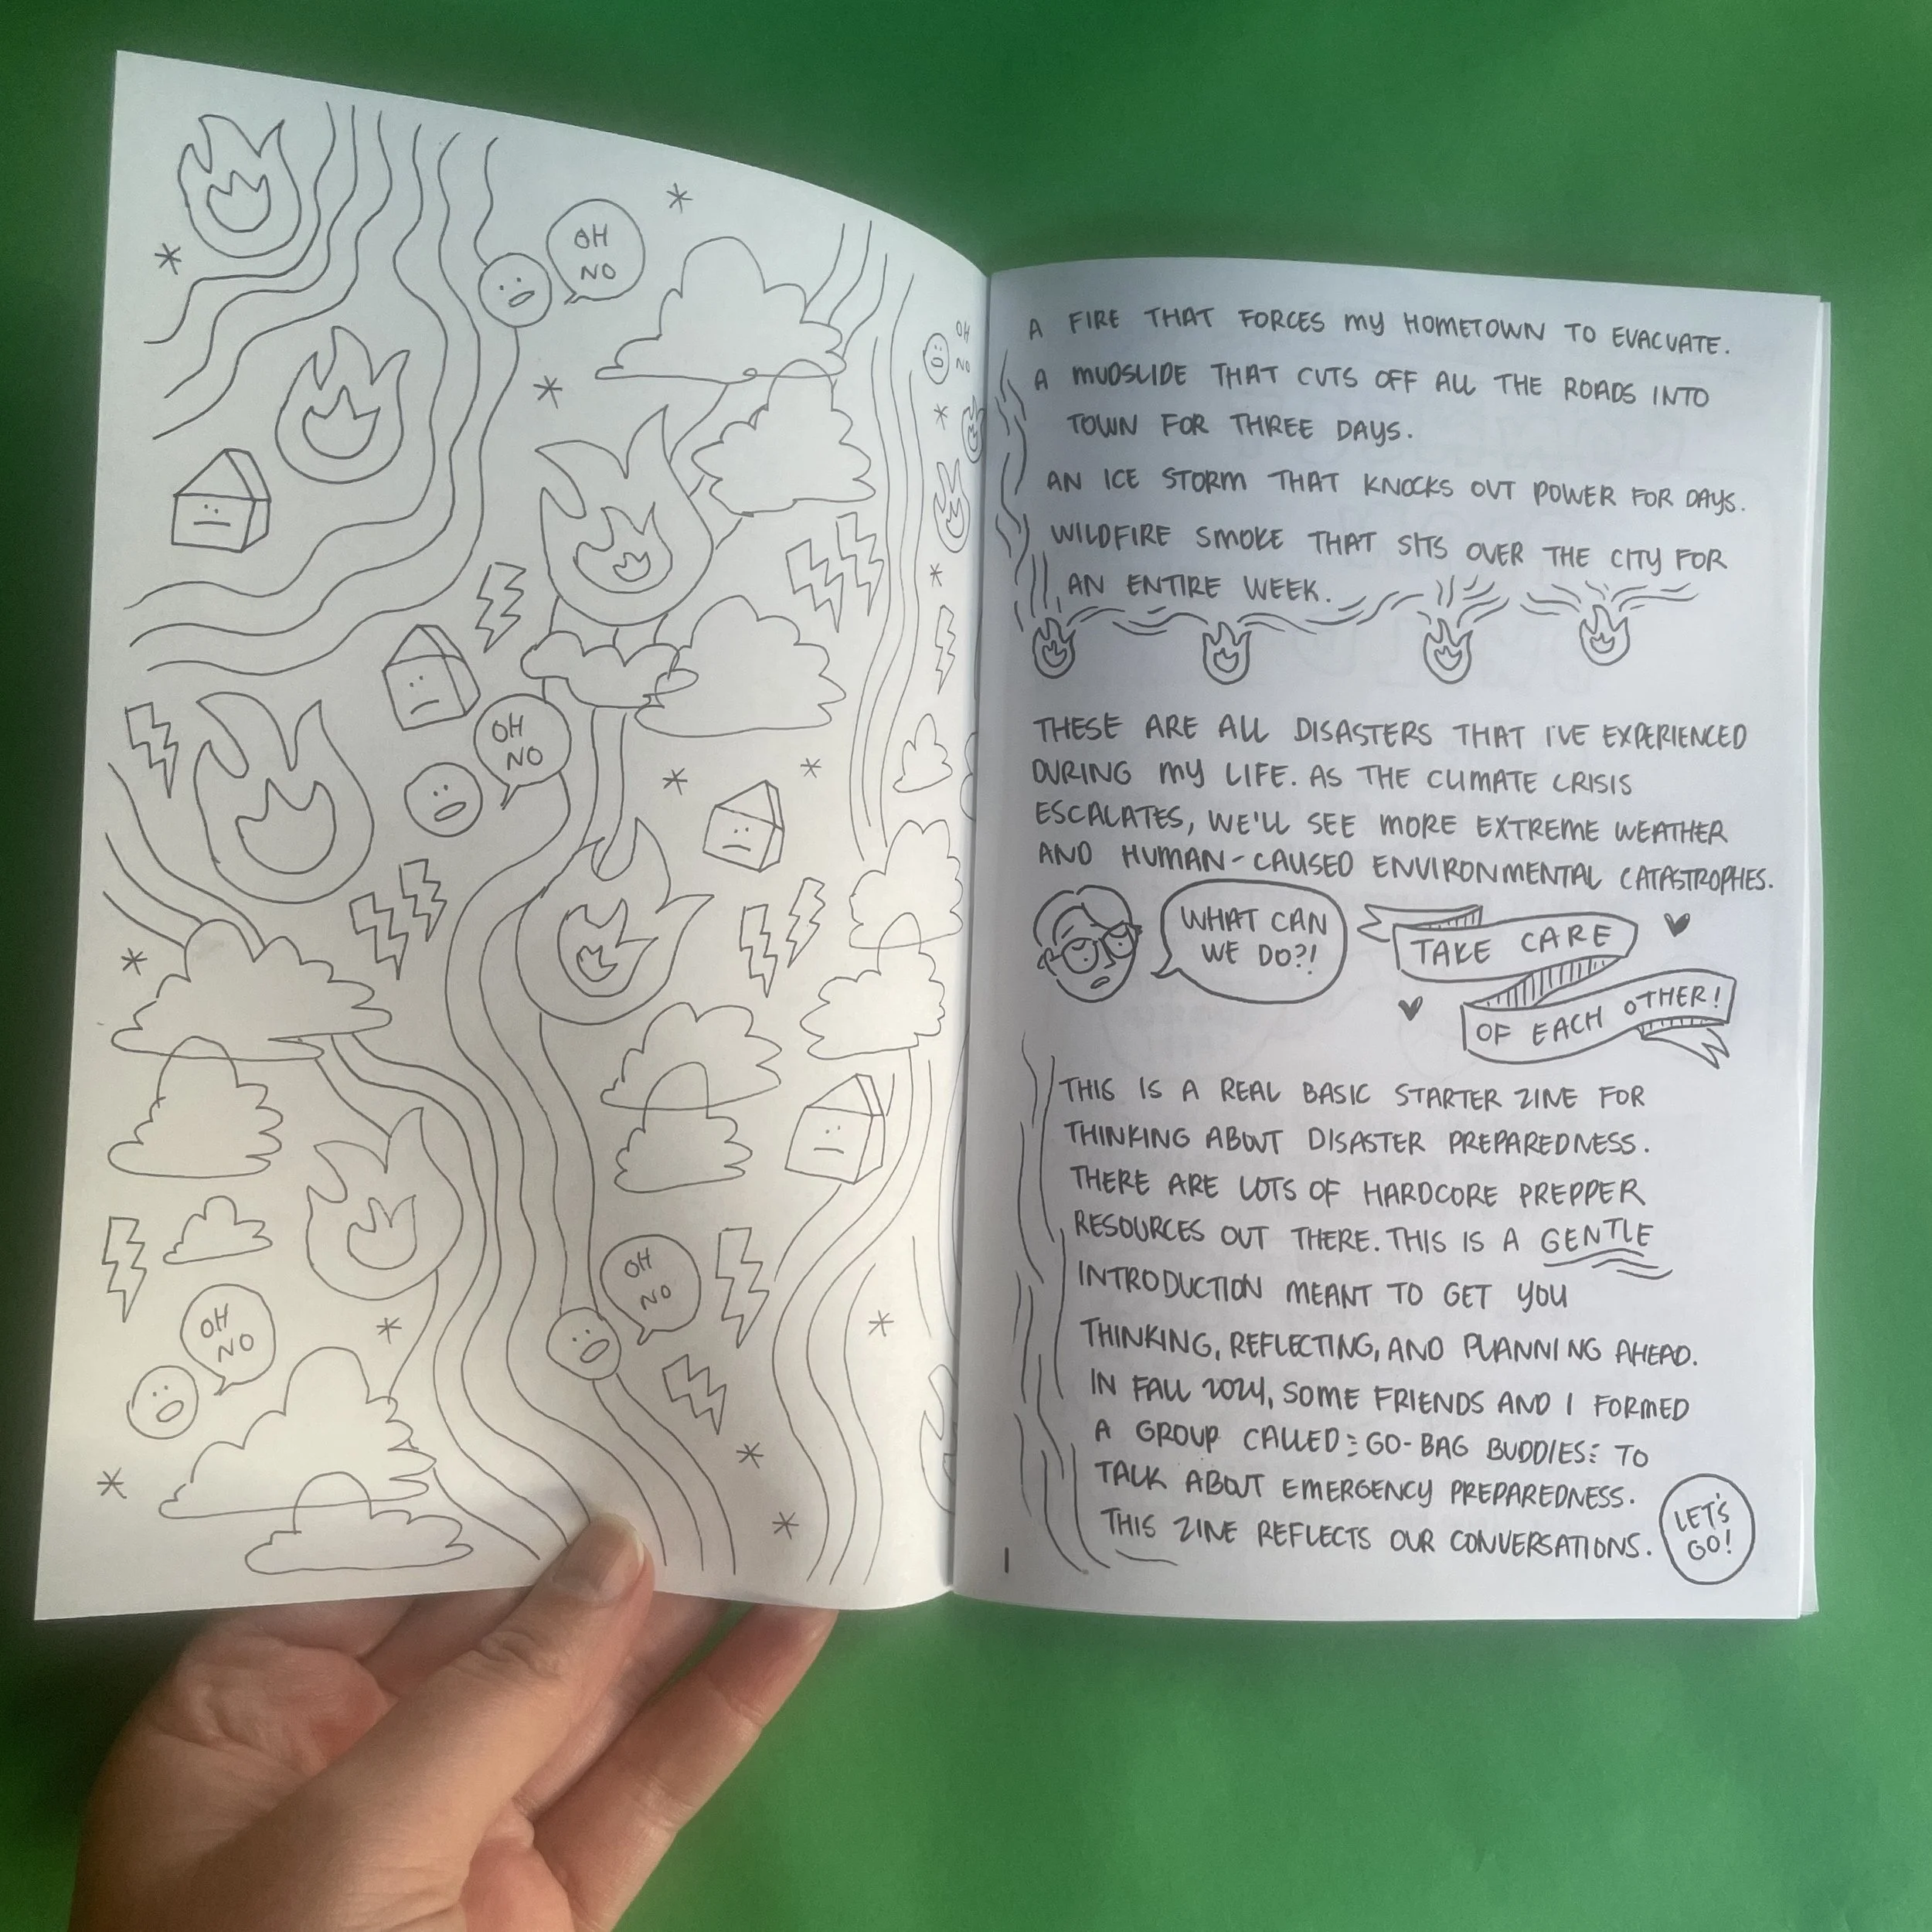 OH
NO
OH
NO
OH
NO
OH
NO
OH
NO
A FIRE THAT FORCES MY HOMETOWN TO EVACUATE.
A MUDSLIDE THAT CUTS OFF ALL THE ROADS INTO
TOWN FOR THREE DAYS.
AN ICE STORM THAT KNOCKS OUT POWER FOR DAYS.
WILDFIRE SMOKE THAT SITS OVER THE CITY FOR
AN ENTIRE WEEK.
THESE ARE ALL DISASTERS THAT I'VE EXPERIENCED
DURING MY LIFE. AS THE CLIMATE CRISIS
ESCALATES, WE'LL SEE MORE EXTREME WEATHER
AND HUMAN-CAUSED ENVIRONMENTAL CATASTROPHES.
WHAT CAN
WE DO?!
TAKE CARE
OF EACH OTHER!
THIS IS A REAL BASIC STARTER ZINE FOR
THINKING ABOUT DISASTER PREPAREDNESS.
THERE ARE LOTS OF HARDCORE PREPPER
RESOURCES OUT THERE. THIS IS A GENTLE
INTRODUCTION MEANT TO GET YOU
THINKING, REFLECTING, AND PLANNING AHEAD.
IN FALL 2024, SOME FRIENDS AND I FORMED
A GROUP CALLED GO-BAG BUDDIES TO
TALK ABOUT EMERGENCY PREPAREDNESS.
THIS ZINE REFLECTS OUR CONVERSATIONS.
LET'S
GO!
1